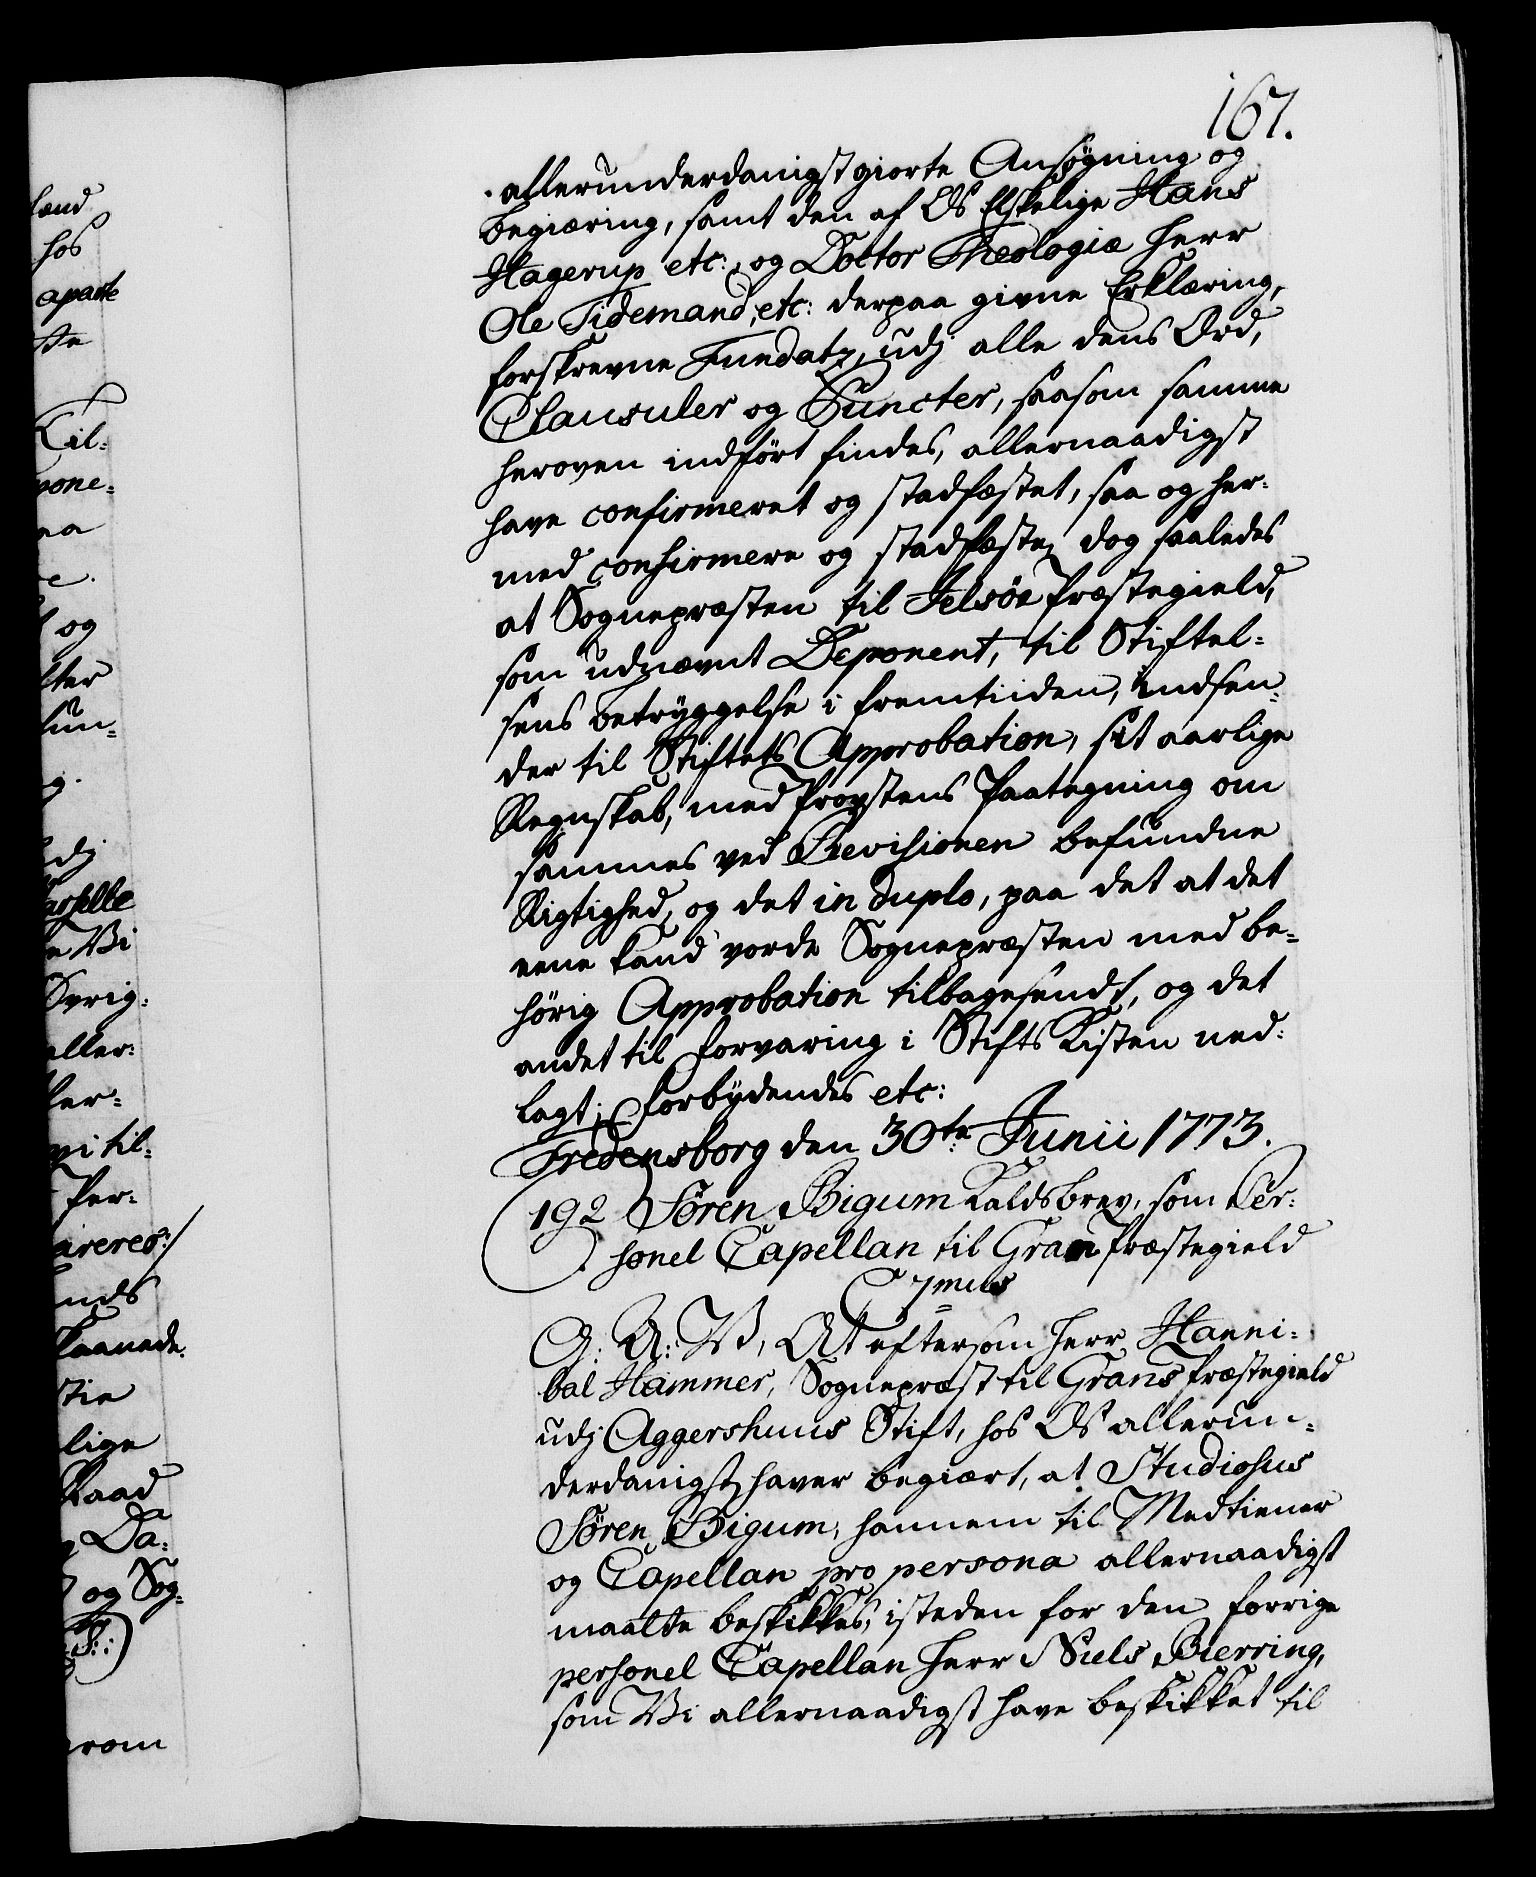 167.
allerunderdanigst giorte Ansøgning og
begiæring, samt den af Os Elskelige Hans
Hagerup etc: og Doctor Theologiæ Herr
Ole Tidemand, etc: derpaa givne Erklæring,
forskrevne Fundatz, udj alle dens Ord,
Clausuler og Puncter, saasom samme
heroven indført findes, allernaadigst
have confirmeret og stadfæstet, saa og her-
med confirmere og stadfæste, dog saaledes
at Sognepræsten til Jelsöe Præstegield,
som udnævnt Deponent, til Stiftel-
sens betryggelse i fremtiiden, indsen-
der til Stiftets Approbation, sit aarlige
Regnskab, med Provstens Paategning om
sammes ved Revisionen befundne
Rigtighed, og det in duplo, paa det at det
eene kand vorde Sognepræsten med be-
hörig Approbation tilbagesendt, og det
andet til forvaring i Stifts Kisten ned-
lagt; Forbydendes etc:
Fredensborg den 30te Junii 1773.
192 Sören Bigum Kaldsbrev, som Per-
sonel Capellan til Gran Præstegield
C 7mus
G: A: V, At eftersom Herr Hanni-
bal Hammer, Sognepræst til Grans Præstegield
udj Aggershuus Stift, hos Os allerun-
derdanigst haver begiært, at Studiosus
Sören Bigum, hannem til Medtiener
og Capellan pro persona allernaadigst
maatte beskikkes, isteden for den forrige
personel Capellan Herr Niels Bierring,
som Vi allernaadigst have beskikket til
land
hos
aparte
Til-
pone-
og
fter
dj
Vi
aller-
til-
Per-
lige
Raad
Da-
og Sog-